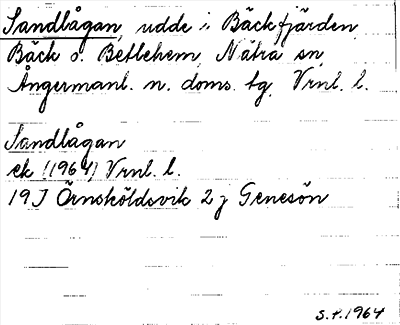 Sandlågan, udde i Bäckfjärden,
Bäck o. Betlehem, Nätra sn,
Ångermanl. n. doms. tg, Vrnl. l.
Sandlågan
ek (1964) Vrnl. l.
19J Örnsköldsvik 2j Genesön
S.P. 1964